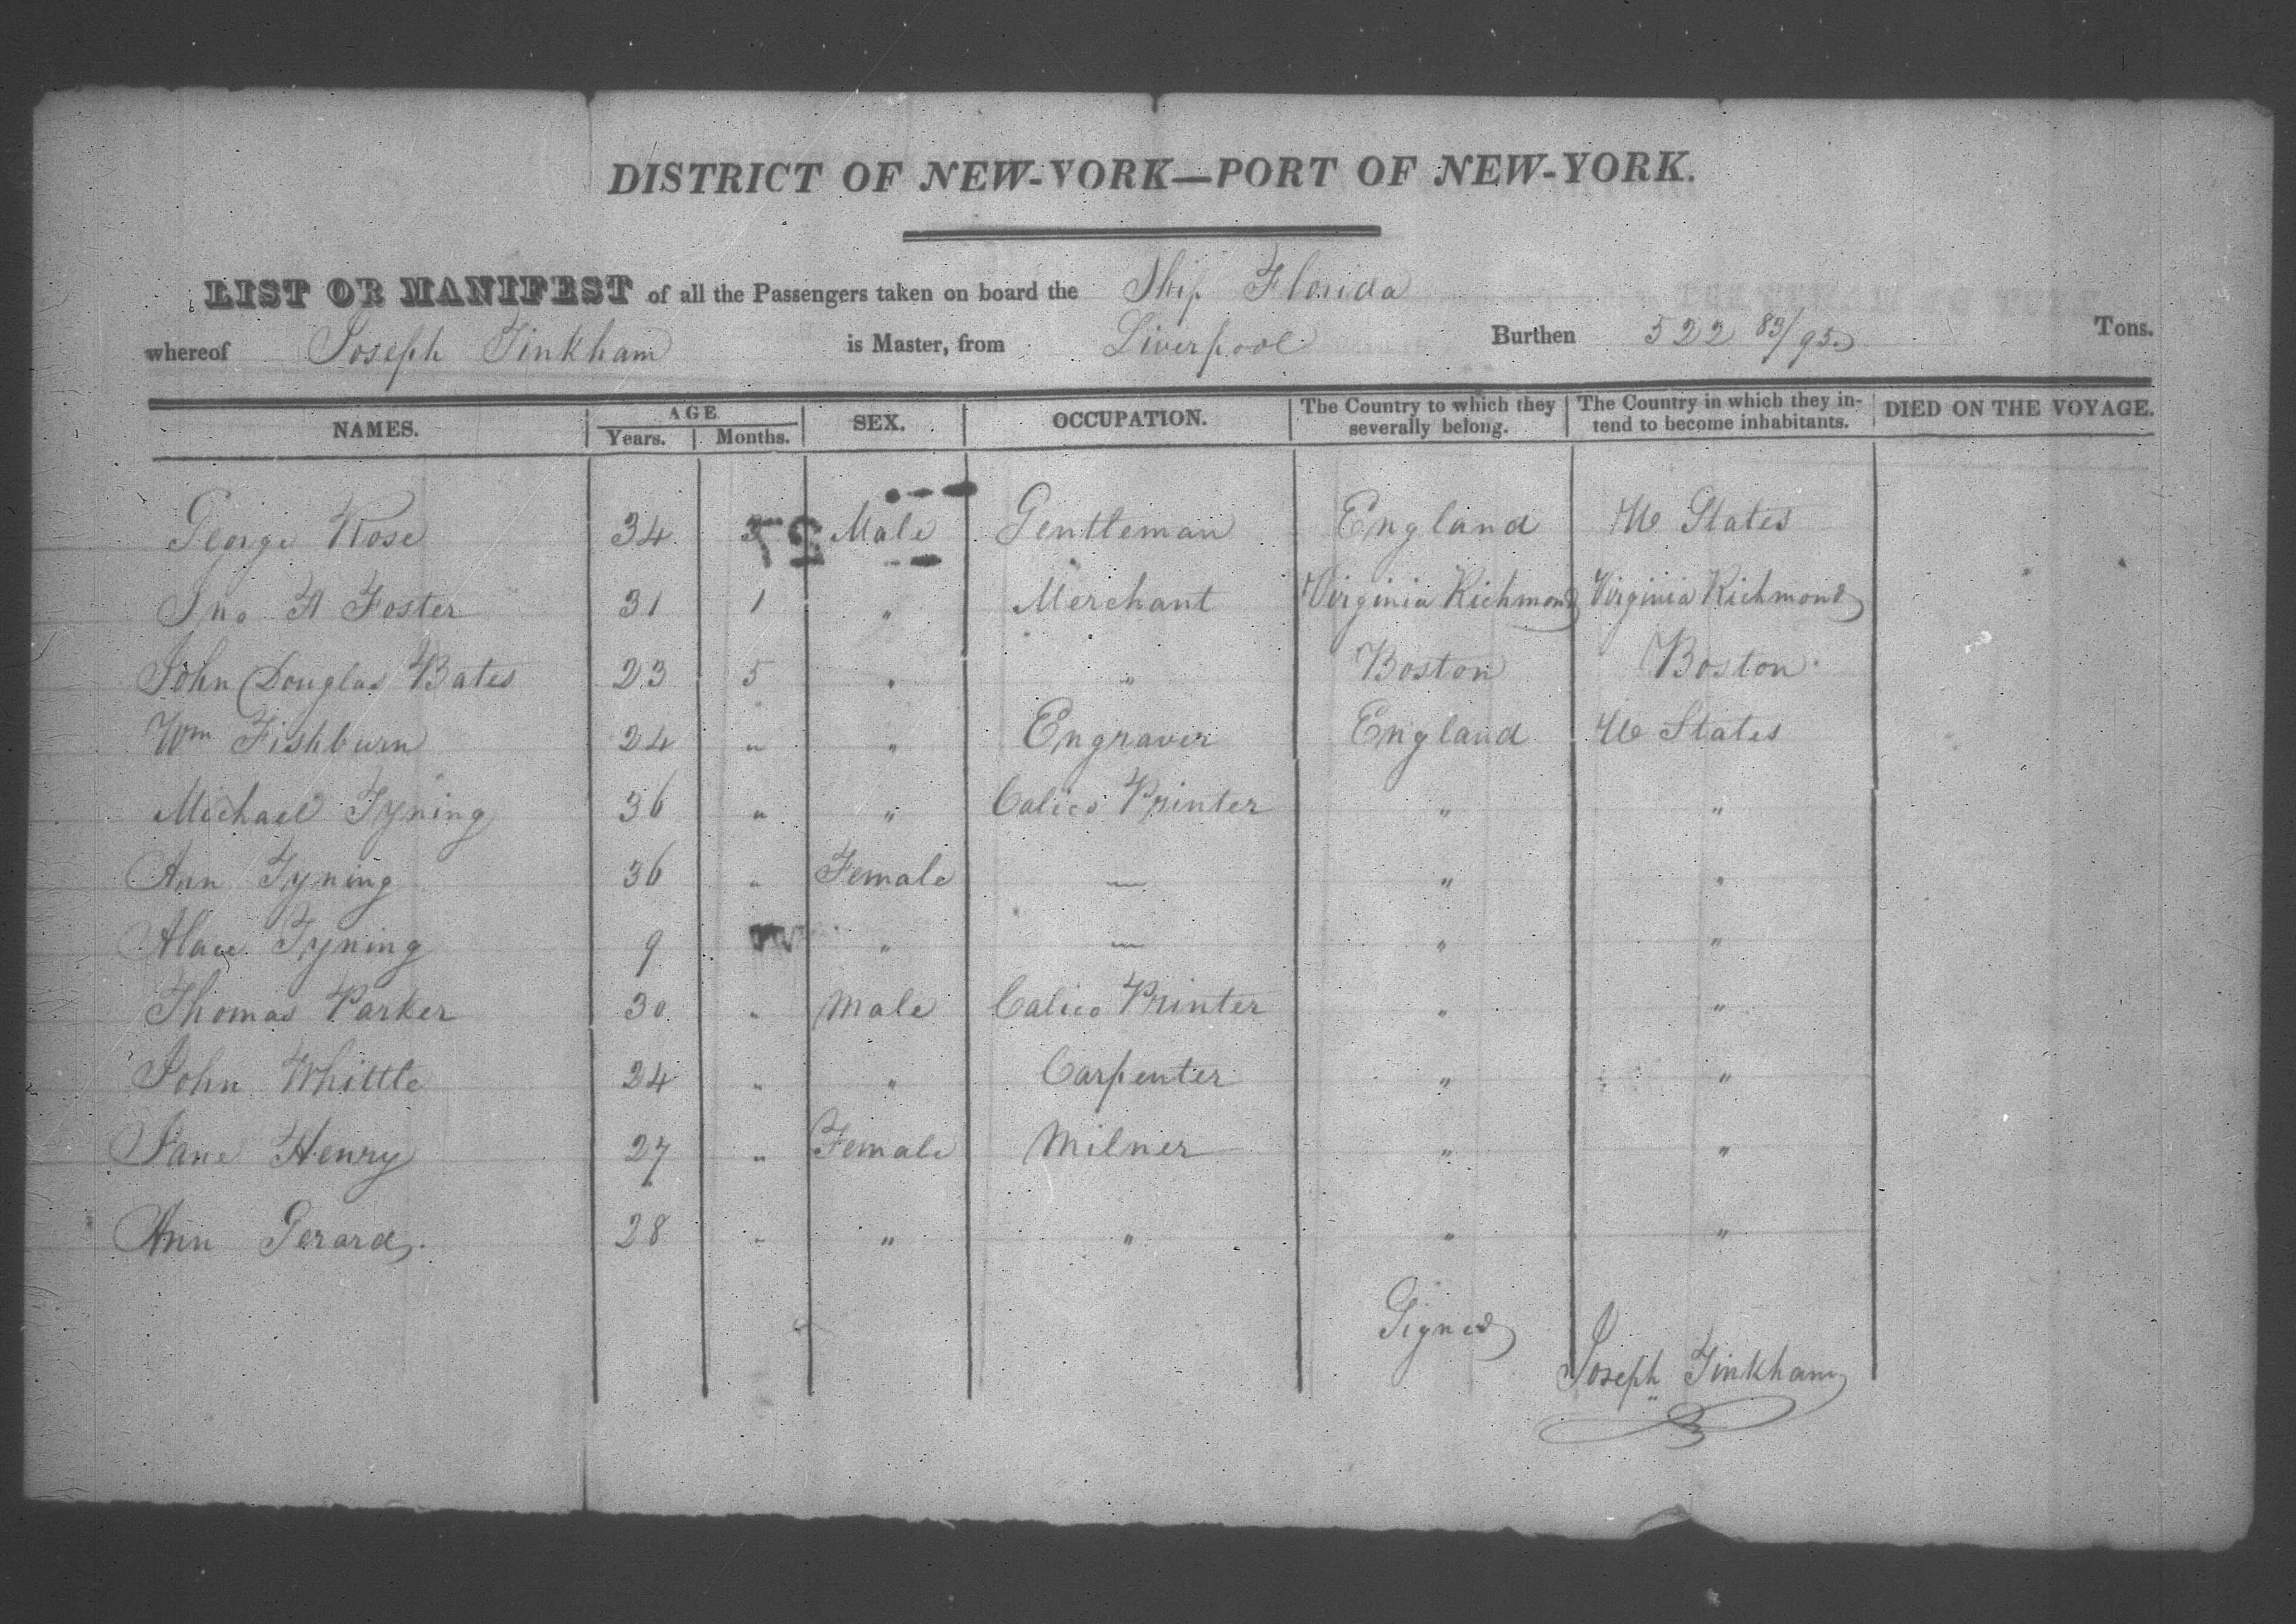 DISTRICT OF NEW-YORK—PORT OF NEW-YORK.
LIST OR MANIFEST of all the Passengers taken on board the Ship Florida
whereof Joseph Tinkham is Master, from Liverpool Burthen 522 83/95 Tons.
NAMES. AGE Years. Months. SEX. OCCUPATION. The Country to which they severally belong. The Country in which they intend to become inhabitants. DIED ON THE VOYAGE.
George Rose 34 3 Male Gentleman England U States
Jno A Foster 31 1 " Merchant Virginia Richmond Virginia Richmond
John Douglas Bates 23 5 " " Boston Boston
Wm Fishburn 24 " " Engraver England U States
Michael Tyning 36 " " Calico Printer " "
Ann Tyning 36 " Female — " "
Alace Tyning 9 " — " "
Thomas Parker 30 " Male Calico Printer " "
John Whittle 24 " " Carpenter " "
Jane Henry 27 " Female Milner " "
Ann Gerard. 28 " " " " "
Signed
Joseph Tinkham